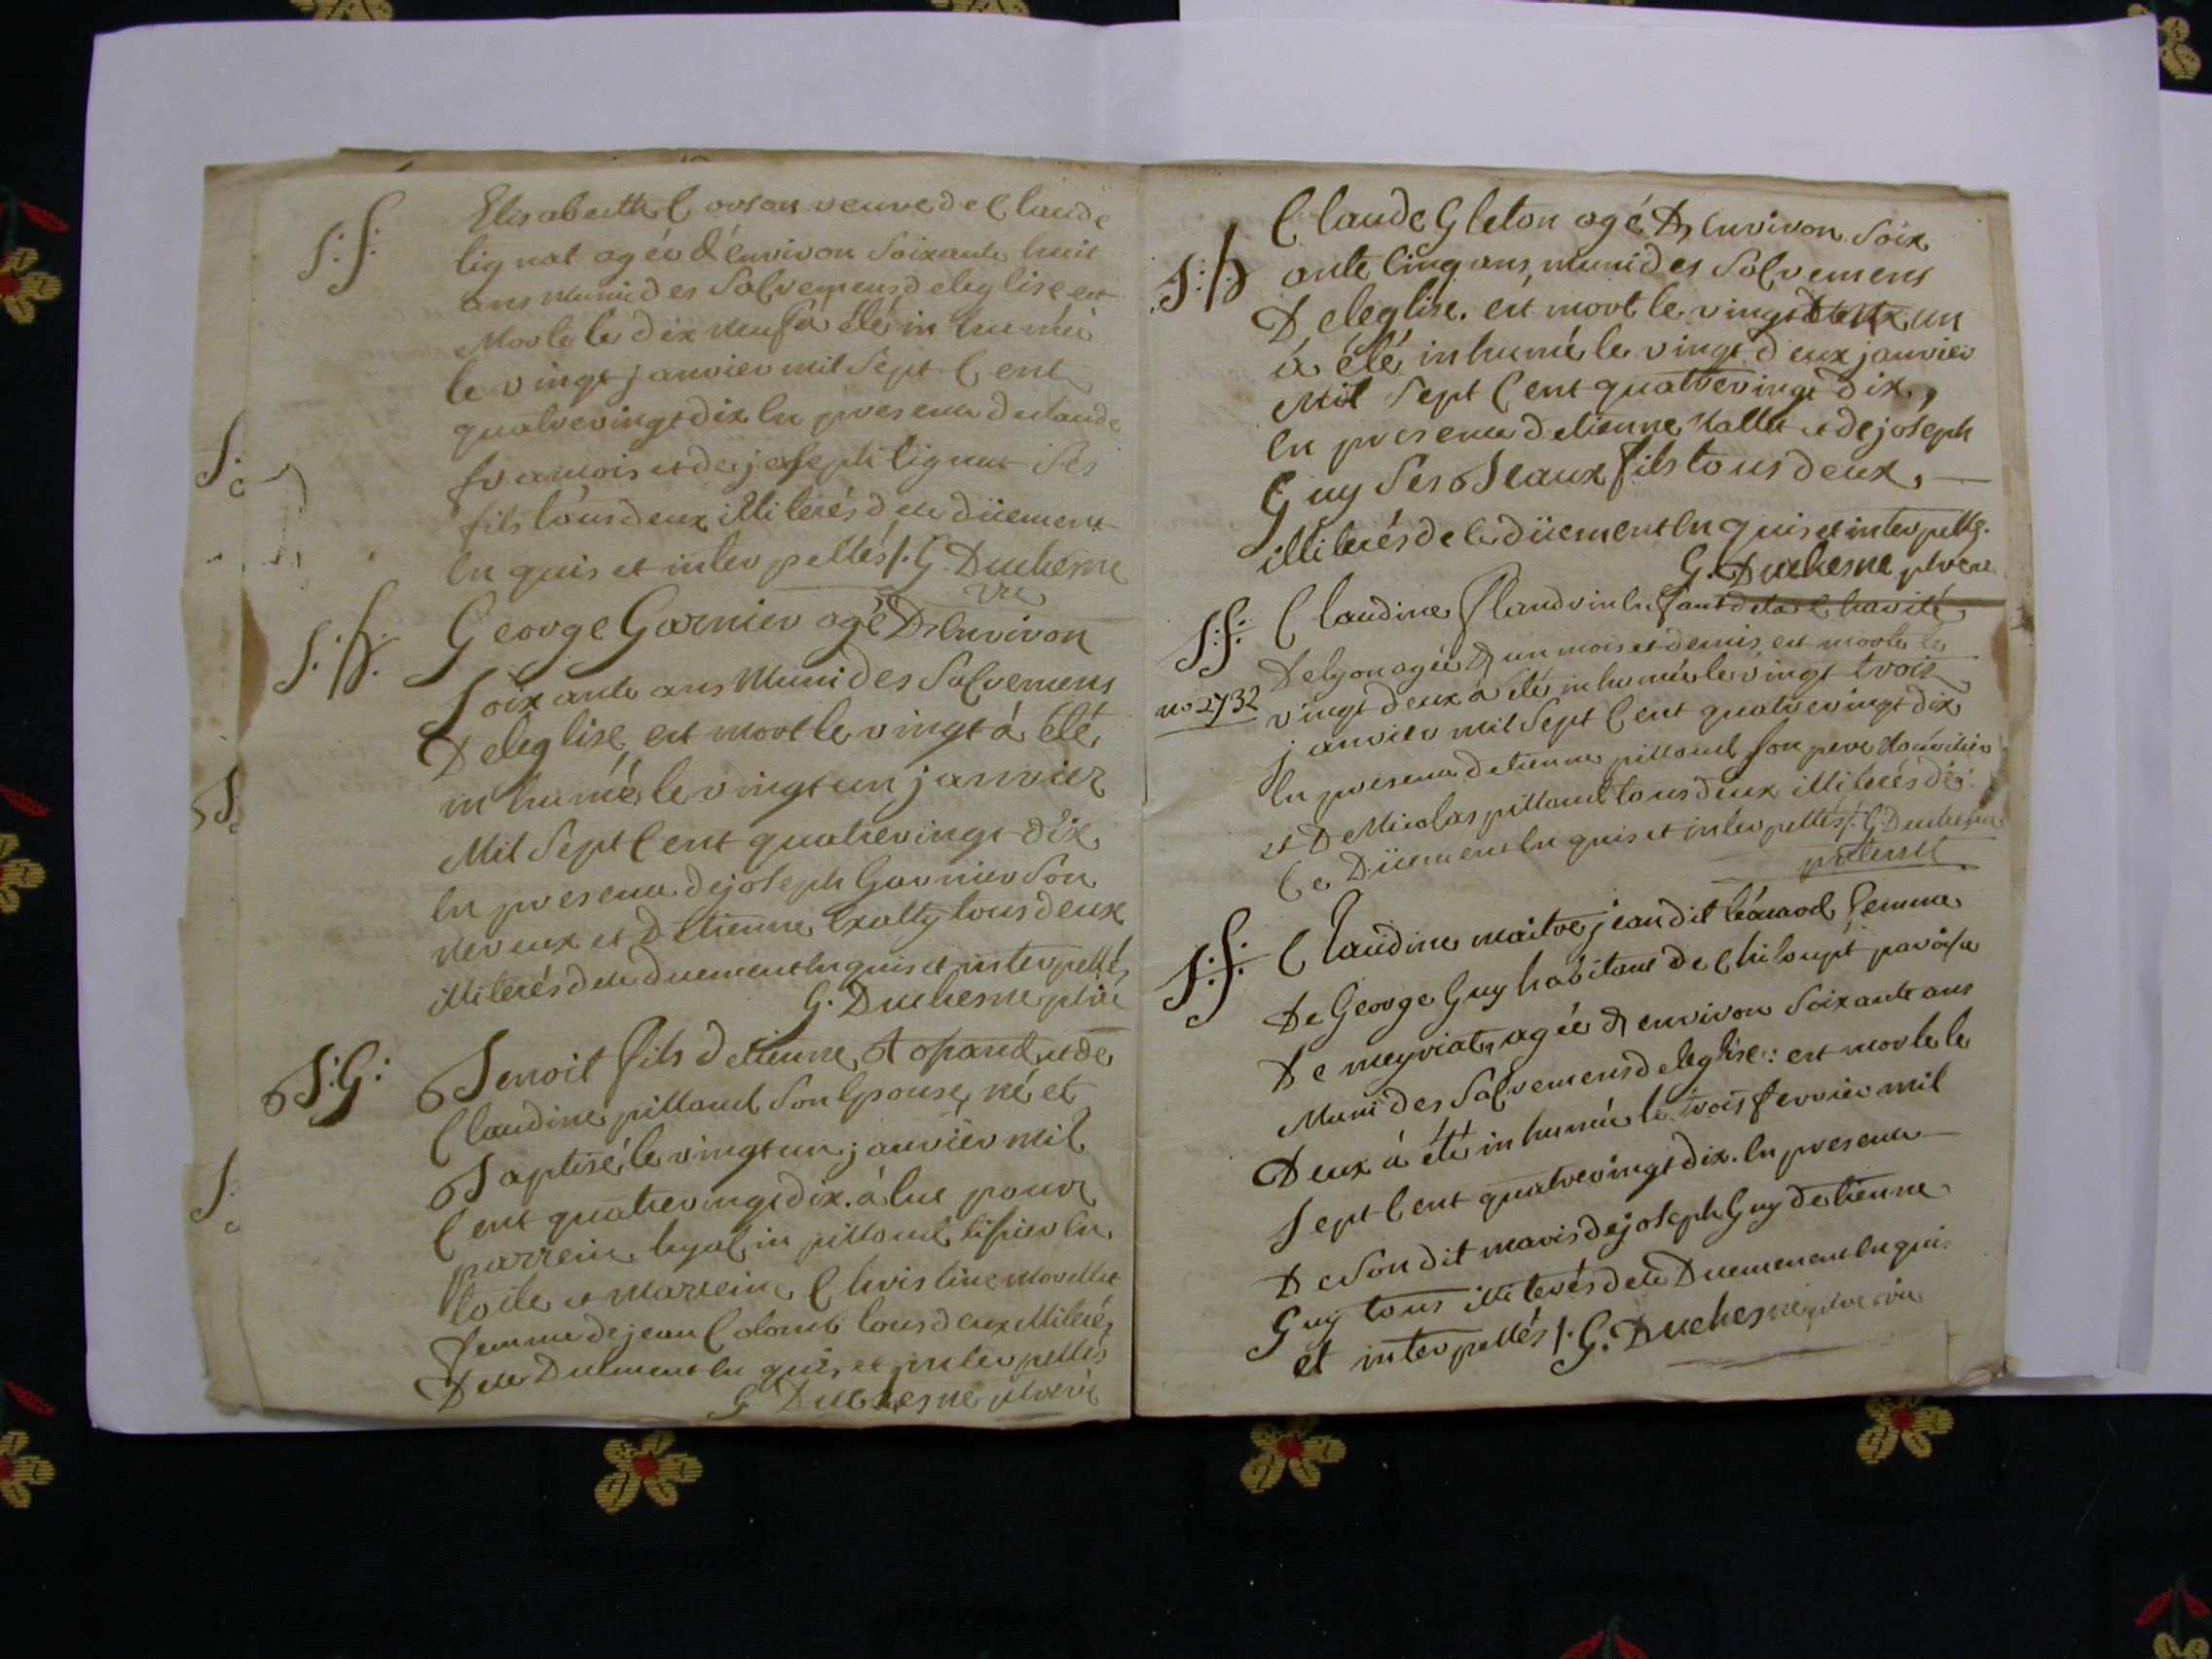 S: f:
Elisabeth Corson veuve de Claude
tignat agée d'environ Soixante huit
ans muni des Sacremens deleglise est
Morte le dix neuf á été in humée
le vingt janvier mil Sept Cent
quatrevingt dix En presence de claude
francois et de joseph tignat Ses
fils tous deux illiterés de ce düement
En quis et inter pellés /. G. Duchesne
vre
S: h:
George Garnier agé D'Environ
Soix ante ans Muni des Sacremens
D eleglise, est mort le vingt á été
in humé le vingt un janvier
Mil Sept Cent quatrevingt dix
En presence de joseph Garnier Son
neveux et D Etienne tous deux
illiterés de ce duement Enquis et interpellés
G. Duchesne
B: G:
Benoit fils detienne et de
Claudine pilland Son Epouse, né et
Baptisé le vingt un janvier mil
Cent quatrevingt dix. á Eut pour
parrein pilland tissier En
toile et marreine Christine morellet
femme de jean Colomb tous deux illiterés
De ce Duement En quis et inter pellés
G Duchesne
S: h
Claude Gleton agé D'Environ Soix
ante Cinq ans, muni des Sacremens
D eleglise. est mort le vingt deux un
á été inhumé le vingt deux janvier
Mil Sept Cent quatrevingt dix,
En presence detienne et de joseph
Guy Ses Beaux fils tous deux,
illiterés de ce düement En quis et interpellés.
G. Duchesne
S: f:
no 2732
Claudine flandrin Enfant dela Charité
De lyon agée D'un mois et demis est morte le
vingt deux á été in humée le vingt trois
janvier mil Sept Cent quatrevingt dix
En presence detienne pilland Son pere Nourricier
et De Nicolas pilland tous deux illiterés de
Ce Düement En quis et interpellés /. G. Duchesne
S: f:
Claudine maitre jean dit léonard femme
De George Guy habitant de Chiloupt paroisse
De meyriat, agée D'environ Soixante ans
Muni des Sacremens deleglise: est morte le
Deux á été in humée le trois fevrier mil
Sept Cent quatrevingt dix. En presence
De Son dit maris de joseph Guy detienne
Guy tous illiterés de ce Duemenent En quis
et inter pellés /. G. Duchesne